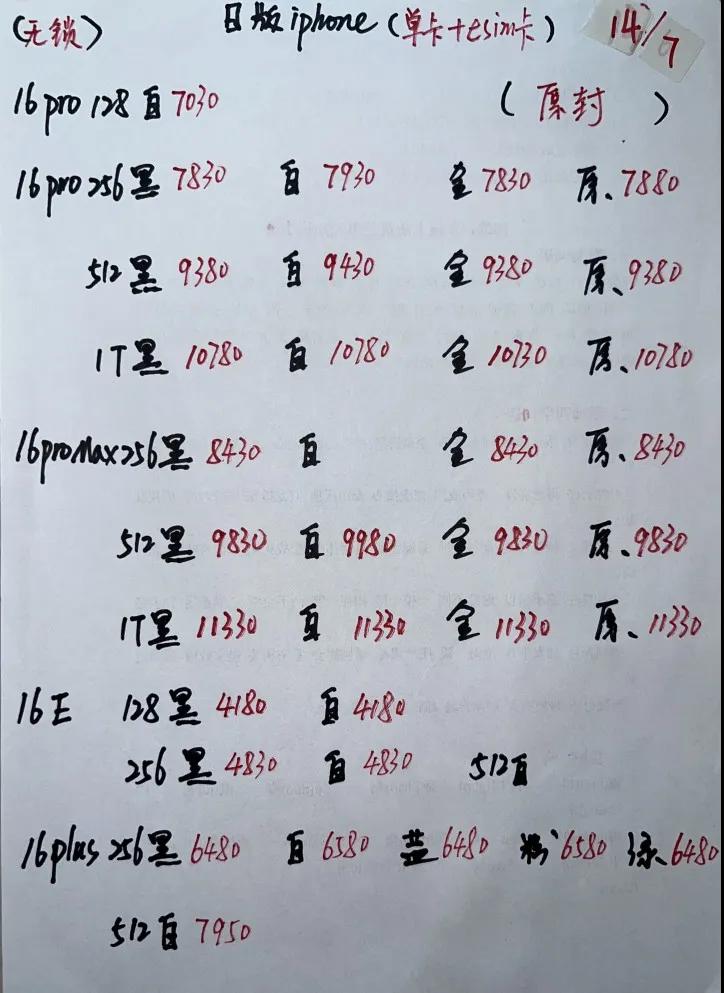 (无锁) 日版iphone(单卡+esim卡) 14/7
16pro 128 白 7030 (原封)
16pro 256 黑 7830 白 7930 金 7830 原、7880
512 黑 9380 白 9430 金 9380 原、9380
1T 黑 10780 白 10780 金 10730 原、10780
16proMax 256 黑 8430 白 金 8430 原、8430
512 黑 9830 白 9980 金 9830 原、9830
1T 黑 11330 白 11330 金 11330 原、11330
16E 128 黑 4180 白 4180
256 黑 4830 白 4830 512 白
16plus 256 黑 6480 白 6580 蓝 6480 粉 6580 绿 6480
512 白 7950